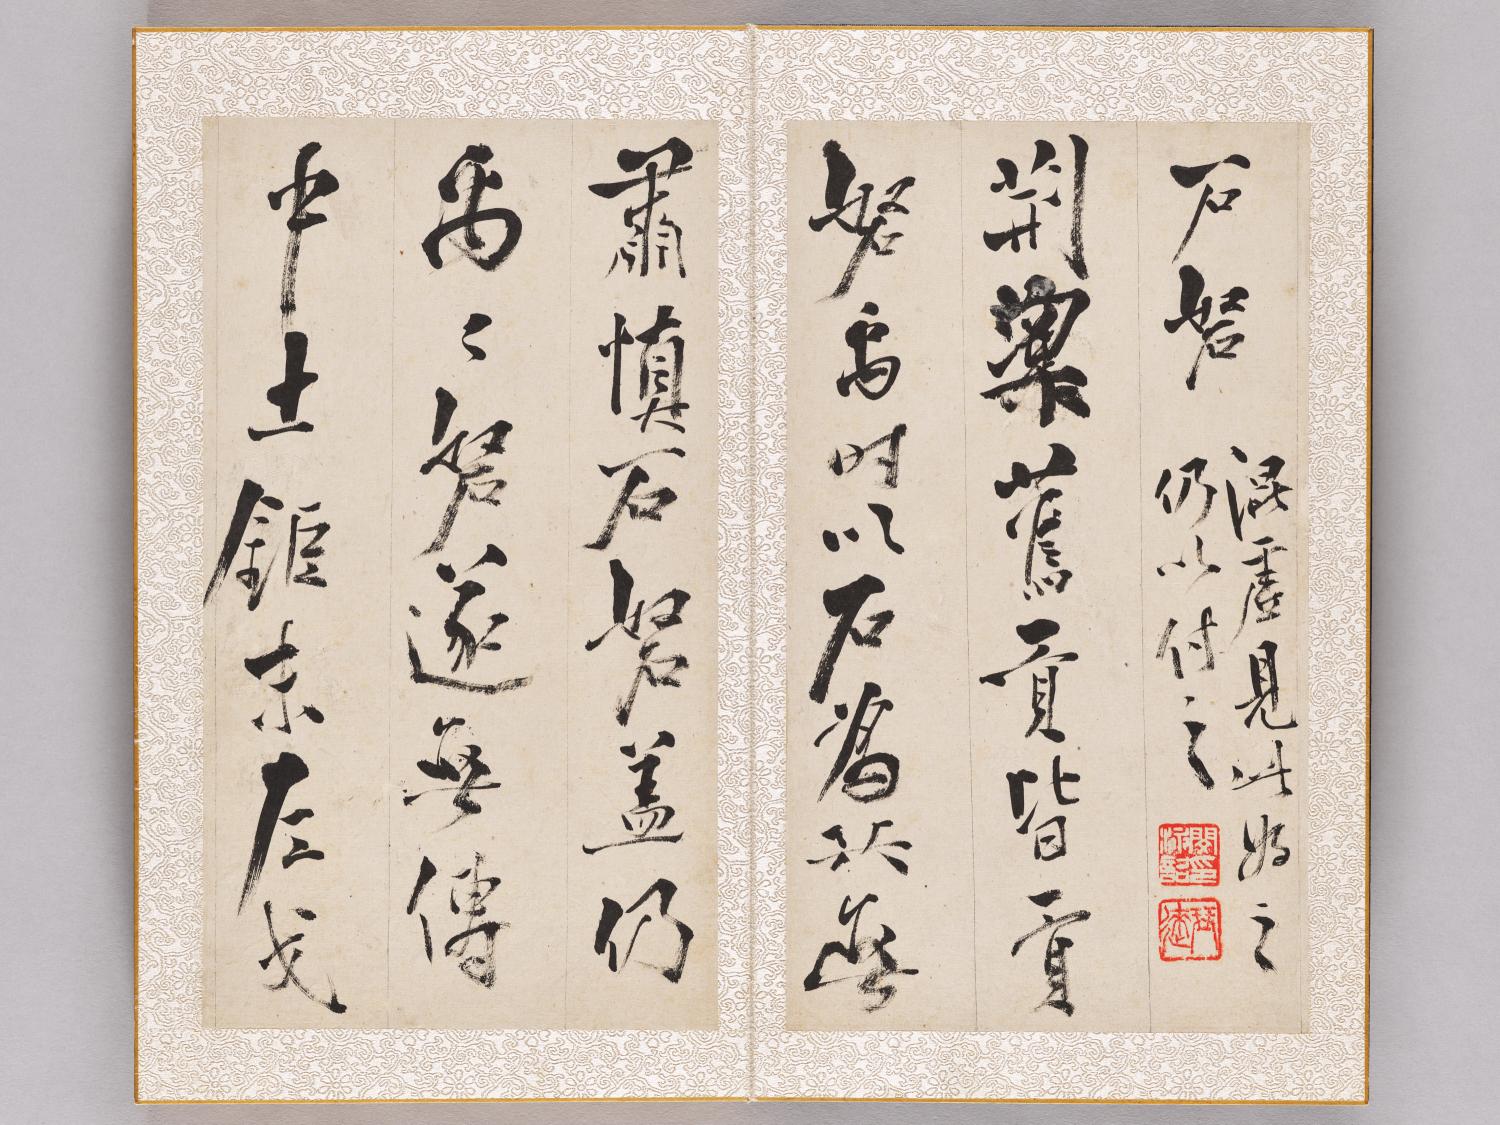 石砮
混虛見此好之
仍以付之
荊梁舊貢皆貢
砮禹时以石為兵無
肅慎石砮蓋仍
禹〻砮遂無傳
中土鉅来左戈